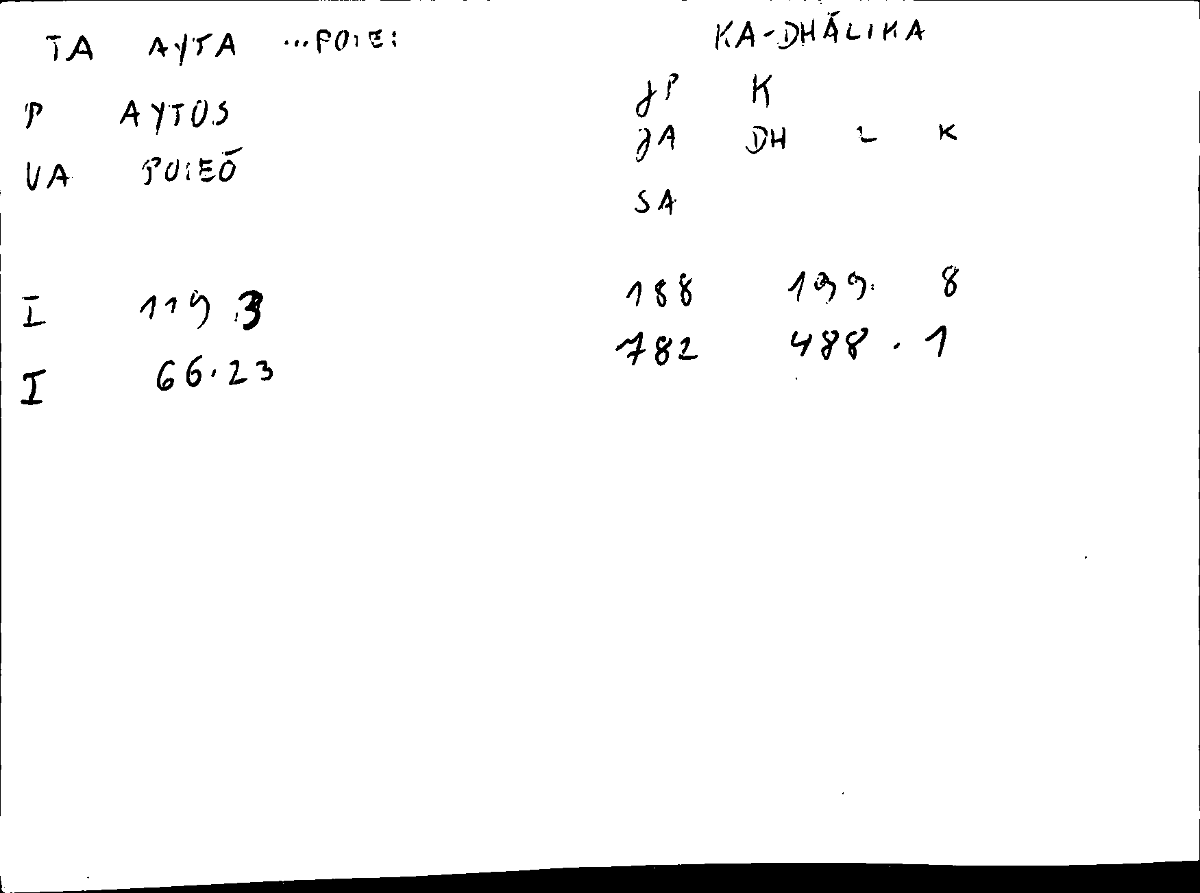 TA AYTA ...POIEI KA-DHĀLIKA
P AYTOS JP K
VA POIEŌ JA DH L K
SA
I 119 3 188 199. 8
I 66.23 782 488.1